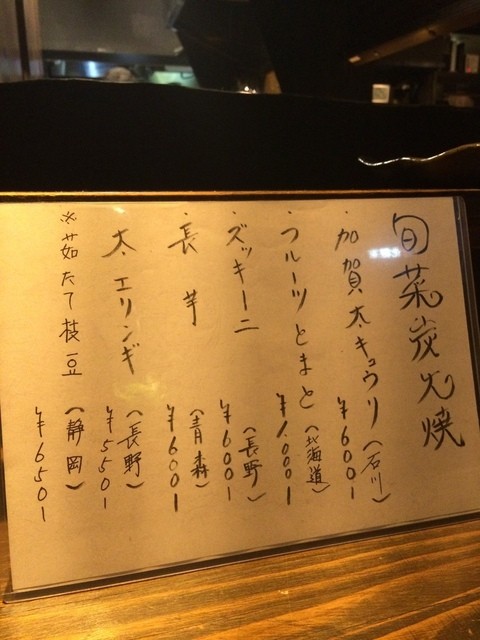 旬菜炭火焼
・加賀太キュウリ(石川)
¥600ー
・フルーツとまと(北海道)
¥1,000ー
・ズッキーニ(長野)
¥600ー
・長芋(青森)
¥600ー
・太エリンギ(長野)
¥550ー
※茹たて枝豆(静岡)
¥650ー